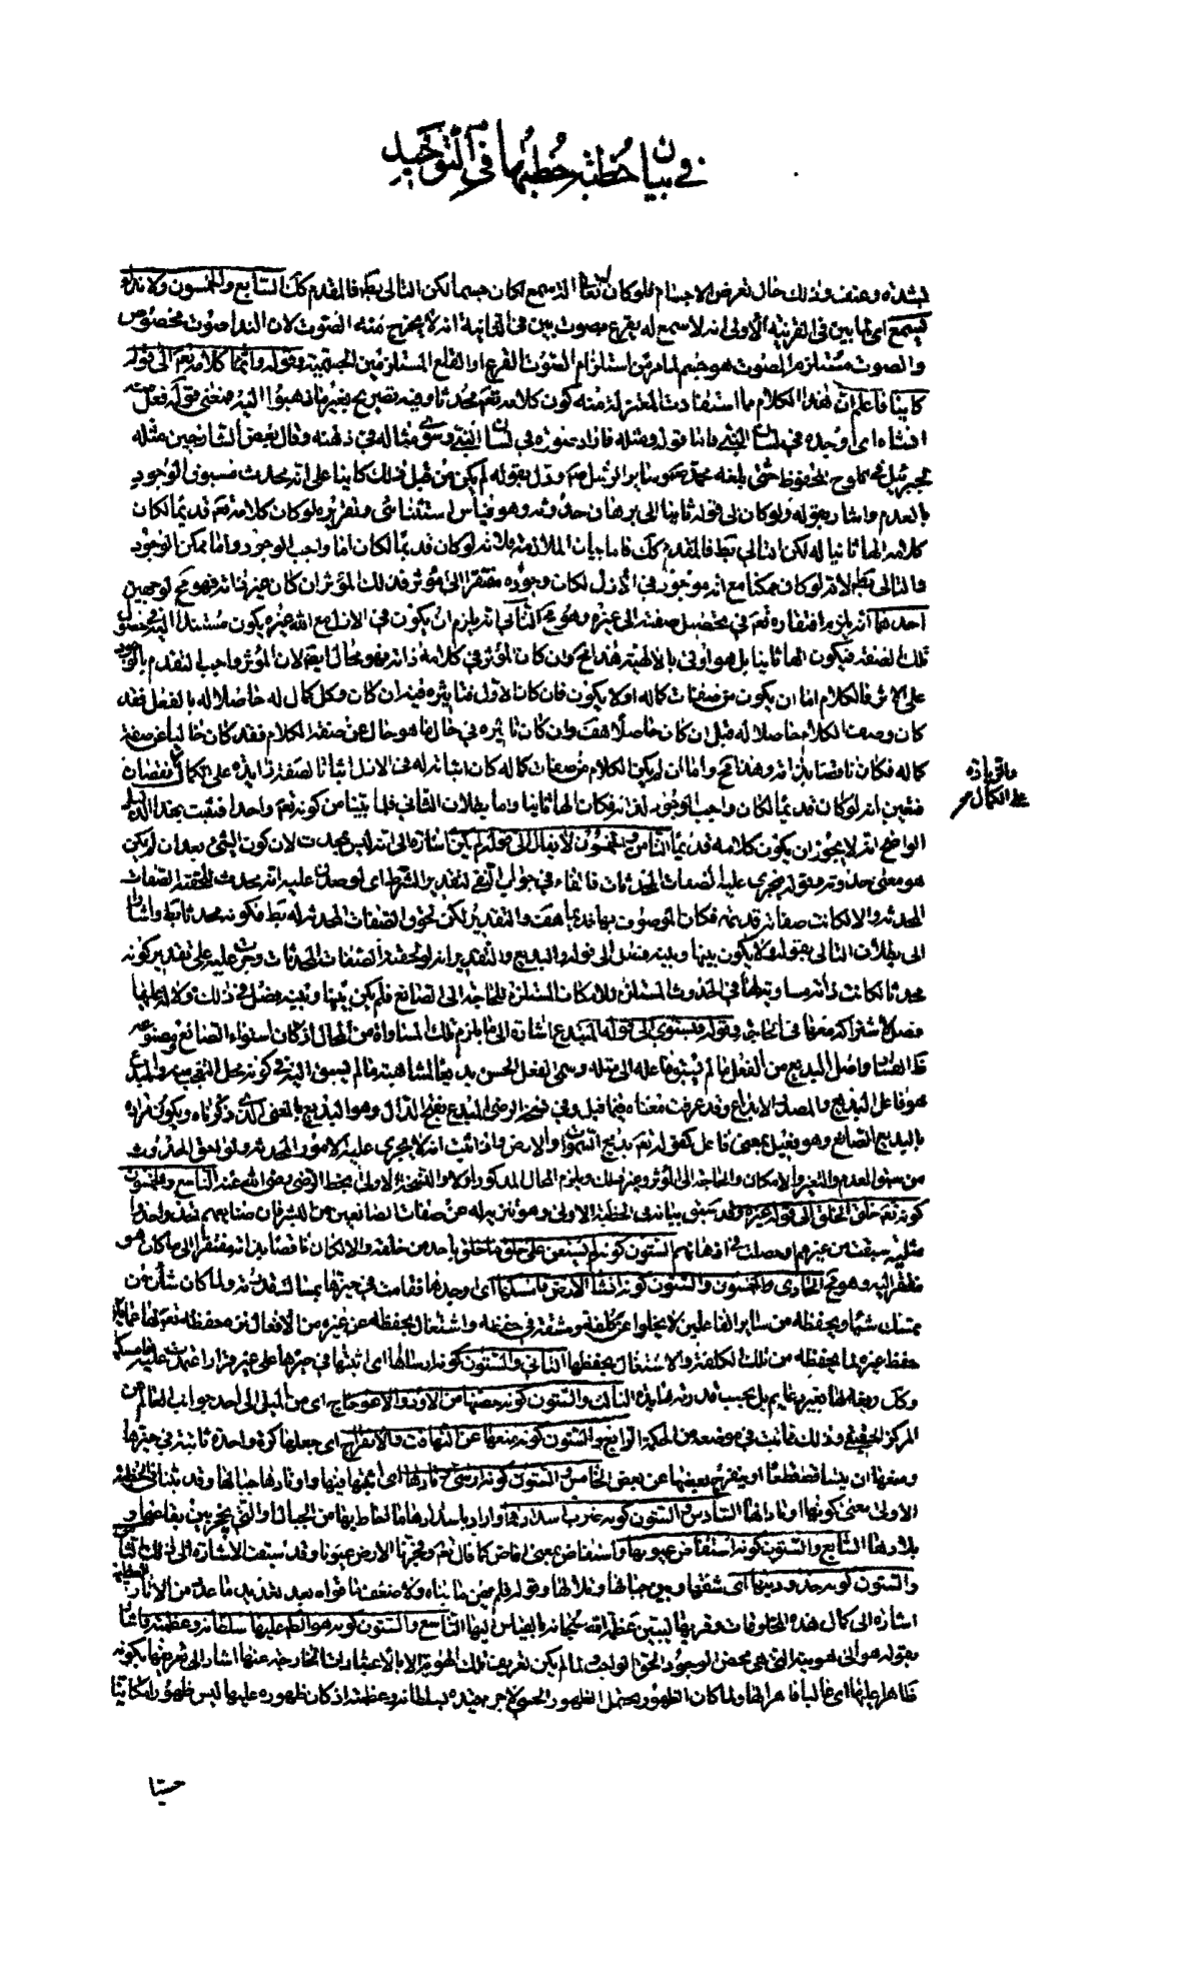 في بيان خطبة خطبها في التوحيد
بشدة وعنف وذلك حال تعرض الاجسام فلو كان تعالى الة سمع لكان جسما لكن التالى بط فالمقدم كك السابع والخمسون ولا نداء
يسمع اى لما بين فى القرينة الاولى انه لا سمع له يقرع بصوت بين فى الثانية انه لا يخرج منه الصوت لان النداء صوت مخصوص
والصوت مستلزم المصوت هو جسم لما مر من استلزام الصوت القرع او القلع المستلزمين الجسمية وقوله وانما كلامه تعم الى قوله
كاينا فاعلم ان هذا الكلام مما استفادت المعتزلة منه كون كلامه تعم محدثا وفيه تصريح بغير ما ذهبوا اليه فمعنى قوله فعل منه
انشاه اى اوجده فى لسان النبى فاما قوله ومثله فاراد صوره فى لسان النبى وسوى مثاله فى ذهنه وقال بعض الشارحين مثله
لجبرئيل فى اللوح المحفوظ حتى بلغه محمد ص وساير الرسل ع م ودل بقوله لم يكن من قبل ذلك كاينا على انه محدث مسبوق الوجود
بالعدم واشار بقوله ولو كان الى قوله ثانيا الى برهان حدوثه وهو قياس استثنائى وتقريره لو كان كلامه تعم قديما لكان
كلامه الها ثانيا له لكن التالى بط فالمقدم كك فاما بيان الملازمة فلانه لو كان قديما لكان اما واجب الوجود واما ممكن الوجود
والتالى بط لانه لو كان ممكنا مع انه موجود فى الازل لكان وجوده مفتقرا الى مؤثر فذلك المؤثر ان كان غير ذاته فهو مح لوجهين
احدهما انه يلزم افتقاره تعم فى تحصيل صفته الى غيره وهو مح الثانى انه يلزم ان يكون فى الازل مع الله غيره يكون مستندا اليه فى حصول
تلك الصفة فيكون الها ثانيا بل هو اولى بالالهية هذا مح وان كان المؤثر فى كلامه ذاته فهو محال ايضا لان المؤثر واجب التقدم بالوجود
على الاثر فالكلام اما ان يكون من صفات كماله اولا يكون فان كان الاول فتاثيره فيه ان كان وكل كمال له حاصلا له بالفعل فقد
كان وصف الكلام حاصلا له قبل ان كان حاصلا هف وان كان تاثيره فى حال ما هو خال عن صفة الكلام فقد كان خاليا عن صفة
كماله فكان ناقصا بذاته وهذا مح واما ان لم يكن الكلام من صفات كماله كان اثباته له فى الازل اثباتا لصفة زايدة على الكمال نقصان
فتعين انه لو كان قديما لكان واجب الوجود لذاته فكان الها ثانيا واما بطلان الثانى فلما بينا من كونه تعم واحدا فثبت بهذا الدليل
الواضح انه لا يجوز ان يكون كلامه قديما الثامن والخمسون لا يقال الى قوله لم يكن اشارة الى انه ليس بمحدث لان كون الشىء بعد ان لم يكن
هو معنى حدوثه وقوله فيجرى عليه الصفات المحدثات فالفاء فى جواب النفى لتقدير الشرط اى لو صدق عليه انه محدث للحقته الصفات
المحدثة والا لكانت صفاته قديمة فكان الموصوف بها قديما هف والتقدير لكن لحوق الصفات المحدثة له بط فكونه محدثا بط واشار
الى بطلان التالى بقوله ولا يكون بينها وبينه فصل الى قوله والبديع والتقدير انه لو لحقته الصفات المحدثات وجرت عليه على تقدير كونه
محدثا لكانت ذاته مساوية لها فى الحدوث المستلزم للامكان المستلزم للحاجة الى الصانع فلم يكن بينها وبينه فصل فى ذلك ولا له عليها
فضل لاشتراكه معها فى الحاجة وقوله فيستوى الى قوله المبتدع اشارة الى ما يلزم تلك المساواة من المحال اذ كان استواء الصانع ومصنوعه
ظ الفساد واصل البديع من الفعل ما لم يسبق فاعله الى مثله وسمى الفعل الحسن بديعا لمشابهته ما لم يسبق اليه فى كونه محل التعجب منه والمبدع
هو فاعل البديع والمصدر الابداع وقد عرفت معناه فيما قبل وفى نسخة الرضى المبدع بفتح الدال وهو البديع بالمعنى الذى ذكرناه ويكون مراده
بالبديع الصانع وهو فعيل بمعنى فاعل كقوله تعم بديع السموات والارض واذا ثبت انه لا يجرى عليه الامور المحدثة ولواحق الحدوث
من سبق العدم والتغير والامكان والحاجة الى المؤثر وغير ذلك ويلزم المحال المذكور اولا والنسخة الاولى بخط الرضى رضى الله عنه التاسع والخمسون
كونه تعم خلق الخلق الى قوله غيره وقد سبق بيانه فى الخطبة الاولى وهو تنزيه له عن صفات الصانعين من البشر فان صنايعهم تحذو حذو
مثلية سبقت من غيرهم او حصلت فى اذهانهم الستون كونه لم يستعن على خلق ما خلق باحد من خلقه والا لكان ناقصا بذاته مفتقرا الى ما كان هو
مفتقرا اليه وهو مح الحادى والستون كونه انشأ الارض فامسكها اى اوجدها فقامت فى حيزها بمساك قدرته ولما كان شأن من
يمسك شيئا ويحفظه من ساير الفاعلين لا يخلوا عن كلفة ومشقة فى حفظه واشتغال بحفظه عن غيره من الافعال نزه حفظه تعم لها عما يلزم
حفظ غيره لما يحفظه من تلك الكلفة والاشتغال بحفظها الثانى والستون كونه ارساها اى اثبتها فى حيزها على غير قرار اعتمدت عليه فامسكها
وكك رفعه لها بغير دعايم بل بحسب قدرته الثالث والستون كونه حصنها من الاود والاعوجاج اى من الميل الى احد جوانب العالم عن
المركز الحقيقى وذلك ثابت فى موضعه من الحكمة الرابع والستون كونه منعها عن التهافت والانفراج اى جعلها كرة واحدة ثابتة فى حيزها
ومنعها ان يتساقط قطعا او ينفرج بعضها عن بعض الخامس والستون كونه ارسى اوتادها اى اثبتها فيها واوتادها جبالها وقد بينا فى الخطبة
الاولى معنى كونها اوتادا لها السادس والستون كونه ضرب اسدادها واراد باسدادها ما احاط بها من الجبال او التى يحجز بين بقاعها و
بلادها السابع والستون كونه استفاض عيونها واستفاض بمعنى افاض كما قال تعم وفجرنا الارض عيونا وقد سبقت الاشارة الى ذلك الثامن
والستون كونه خد اوديتها اى شقها وبين جبالها وتلالها وقوله فلم يهن ما بناه ولا ضعف ما قواه بعد تعديد ما عده من الاثار العظيمة
اشارة الى كمال هذه المخلوقات وقوتها ليتبين عظمة الله سبحانه بالقياس اليها التاسع والستون كونه هو الظاهر عليها بسلطانه وعظمته فاشار
بقوله هو الى هويته التى هى محض الوجود الحق الواجب ولما لم يكن تعريف تلك الهوية الا بالاعتبارات الخارجة عنها اشار الى تعريفها بكونه
ظاهرا عليها اى غالبا قاهرا لها ولما كان الظهور يحتمل الظهور الحسى لا جرم قيده بسلطانه وعظمته اذ كان ظهوره عليها ليس ظهورا مكانيا
على الكمال
حسيا